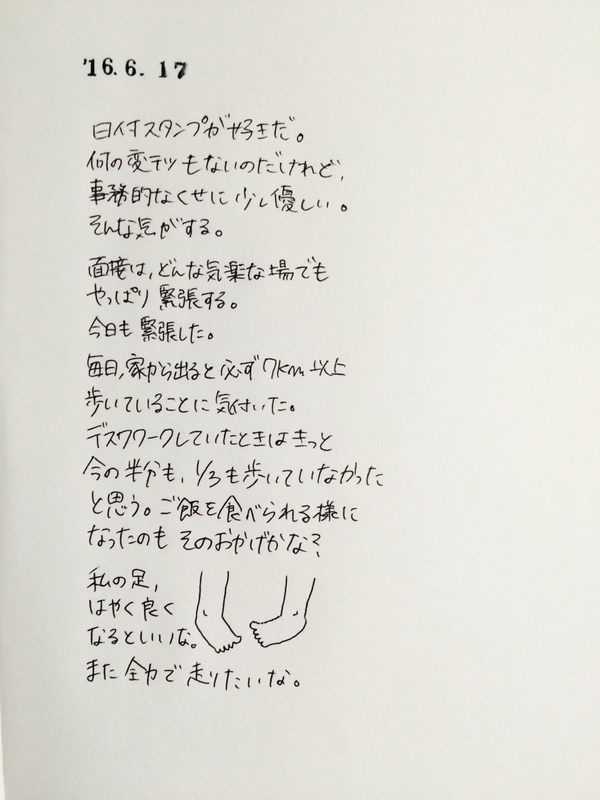 '16.6.17
日付スタンプが好きだ。
何の変テツもないのだけれど、
事務的なくせに少し優しい。
そんな気がする。
面接は、どんな気楽な場でも
やっぱり緊張する。
今日も緊張した。
毎日、家から出ると必ず7km以上
歩いていることに気付いた。
デスクワークしていたときはきっと
今の半分も、1/3も歩いていなかった
と思う。ご飯を食べられる様に
なったのもそのおかげかな?
私の足、
はやく良く
なるといいな。
また全力で走りたいな。